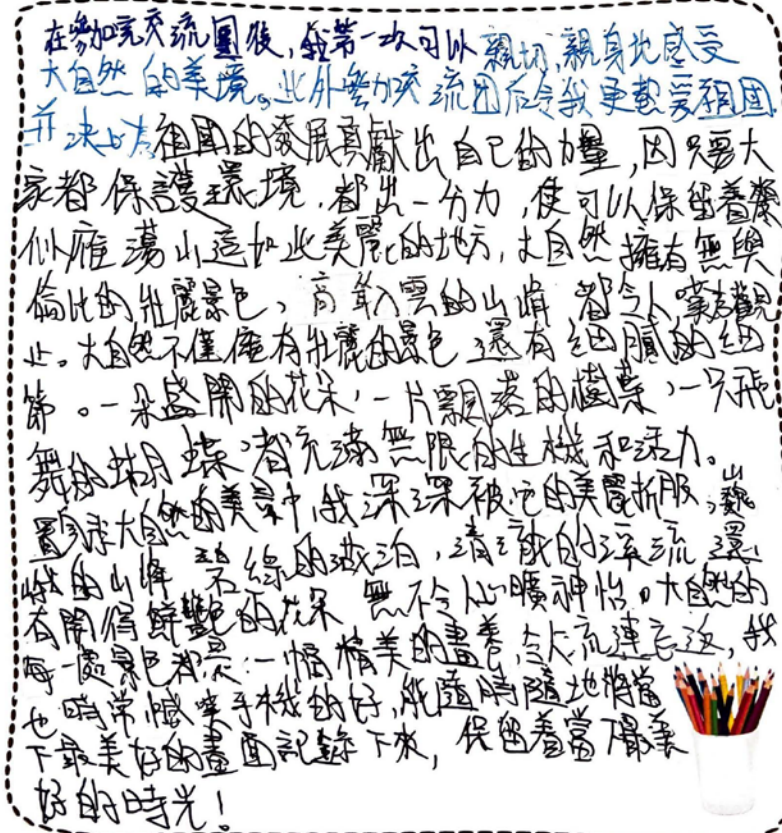 在參加完交流團後,我第一次可以親切,親身地感受
大自然的美境。此外參加交流团后令我更熱爱祖国
并决心为祖國的發展貢獻出自己的力量,因只要大
家都保護環境,都出一分力,便可以保留着
似雁蕩山這如此美麗的地方,大自然擁有無與
倫比的壯麗景色、高聳入雲的山峰 都令人嘆為觀
止。大自然不僅僅有壯麗的景色 還有細膩的細
節。一朵盛開的花朵,一片飄落的樹葉,一只飛
舞的蝴蝶,都充滿無限的生機和活力。
置身於大自然的美景中,我深深被它的美麗折服,巍
峨的山峰 碧綠的湖泊,清澈的溪流 還
有開得鮮艷的花朵 無不令人心曠神怡。大自然的
每一處景色都是一幅精美的畫卷,令人流連忘返,我
也時常感嘆手機的好,能隨時隨地將當
下最美好的畫面記錄下來,保留着當下最美
好的時光!